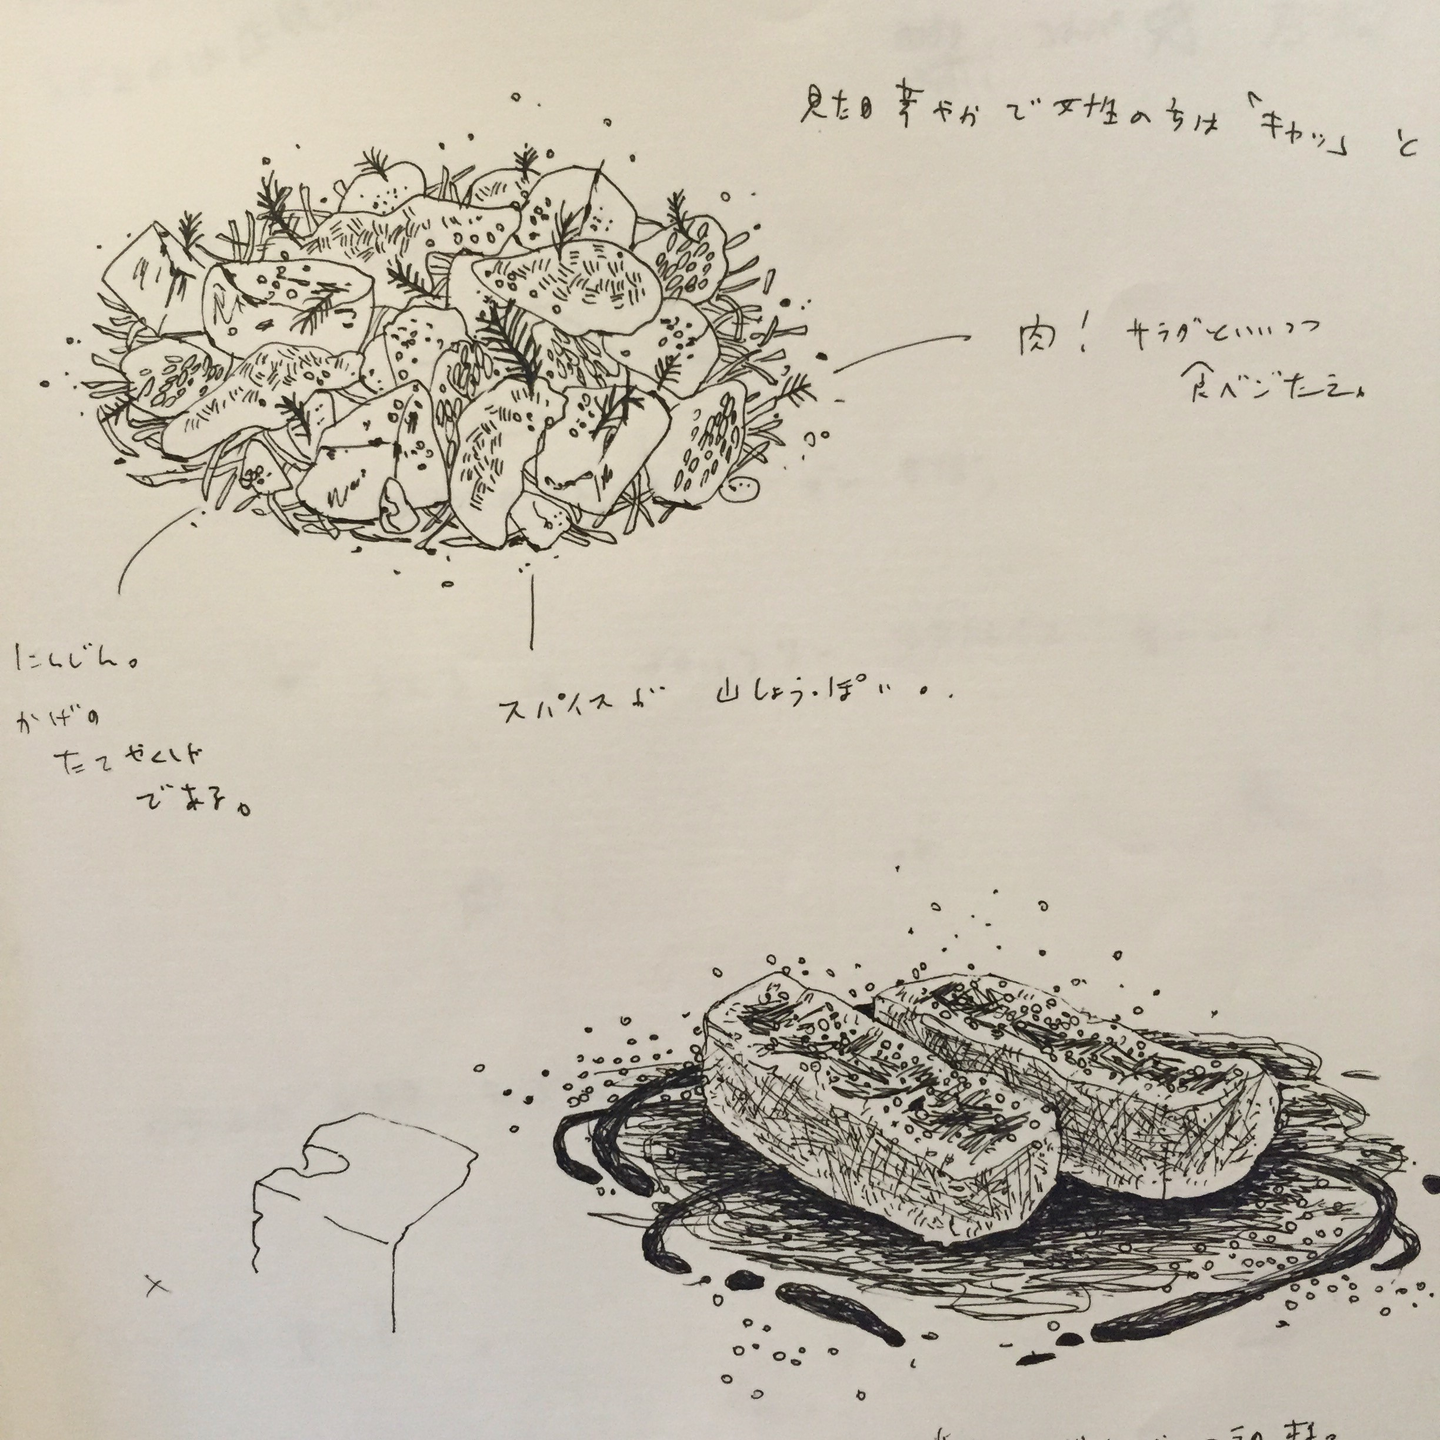 見た目華やかで女性の方は「キャッ」と
肉！サラダといいつつ
食べごたえ。
にんじん。
かげの
たてやくしゃ
である。
スパイスが 山しょうっぽい。.